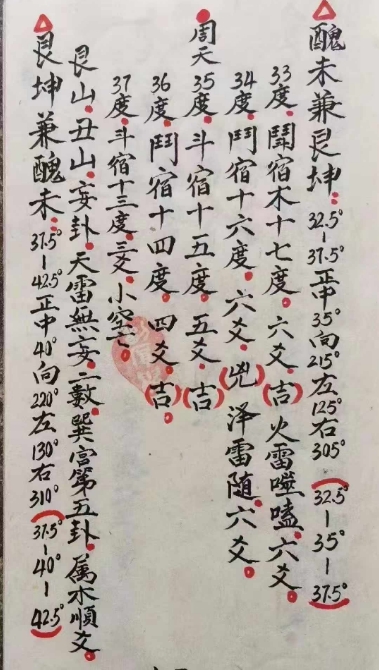 醜未兼艮坤:32.5°-37.5°正中35°向215°左125°右305°(32.5°-35°-37.5°)
33度.鬪宿木十七度.六爻.(吉)火雷噬嗑.六爻.
34度.鬥宿十六度.六爻.(兇)泽雷随.六爻.
周天
35度.斗宿十五度.五爻.(吉)
36度.鬥宿十四度.四爻.(吉)
37度.斗宿十三度.三爻.小空亡.
艮山.丑山.妄卦.天雷無妄.二數.巽宫第五卦.属木順爻.
艮坤兼醜未:37.5°-42.5°正中40°向220°左130°右310°(37.5°-40°-42.5°)